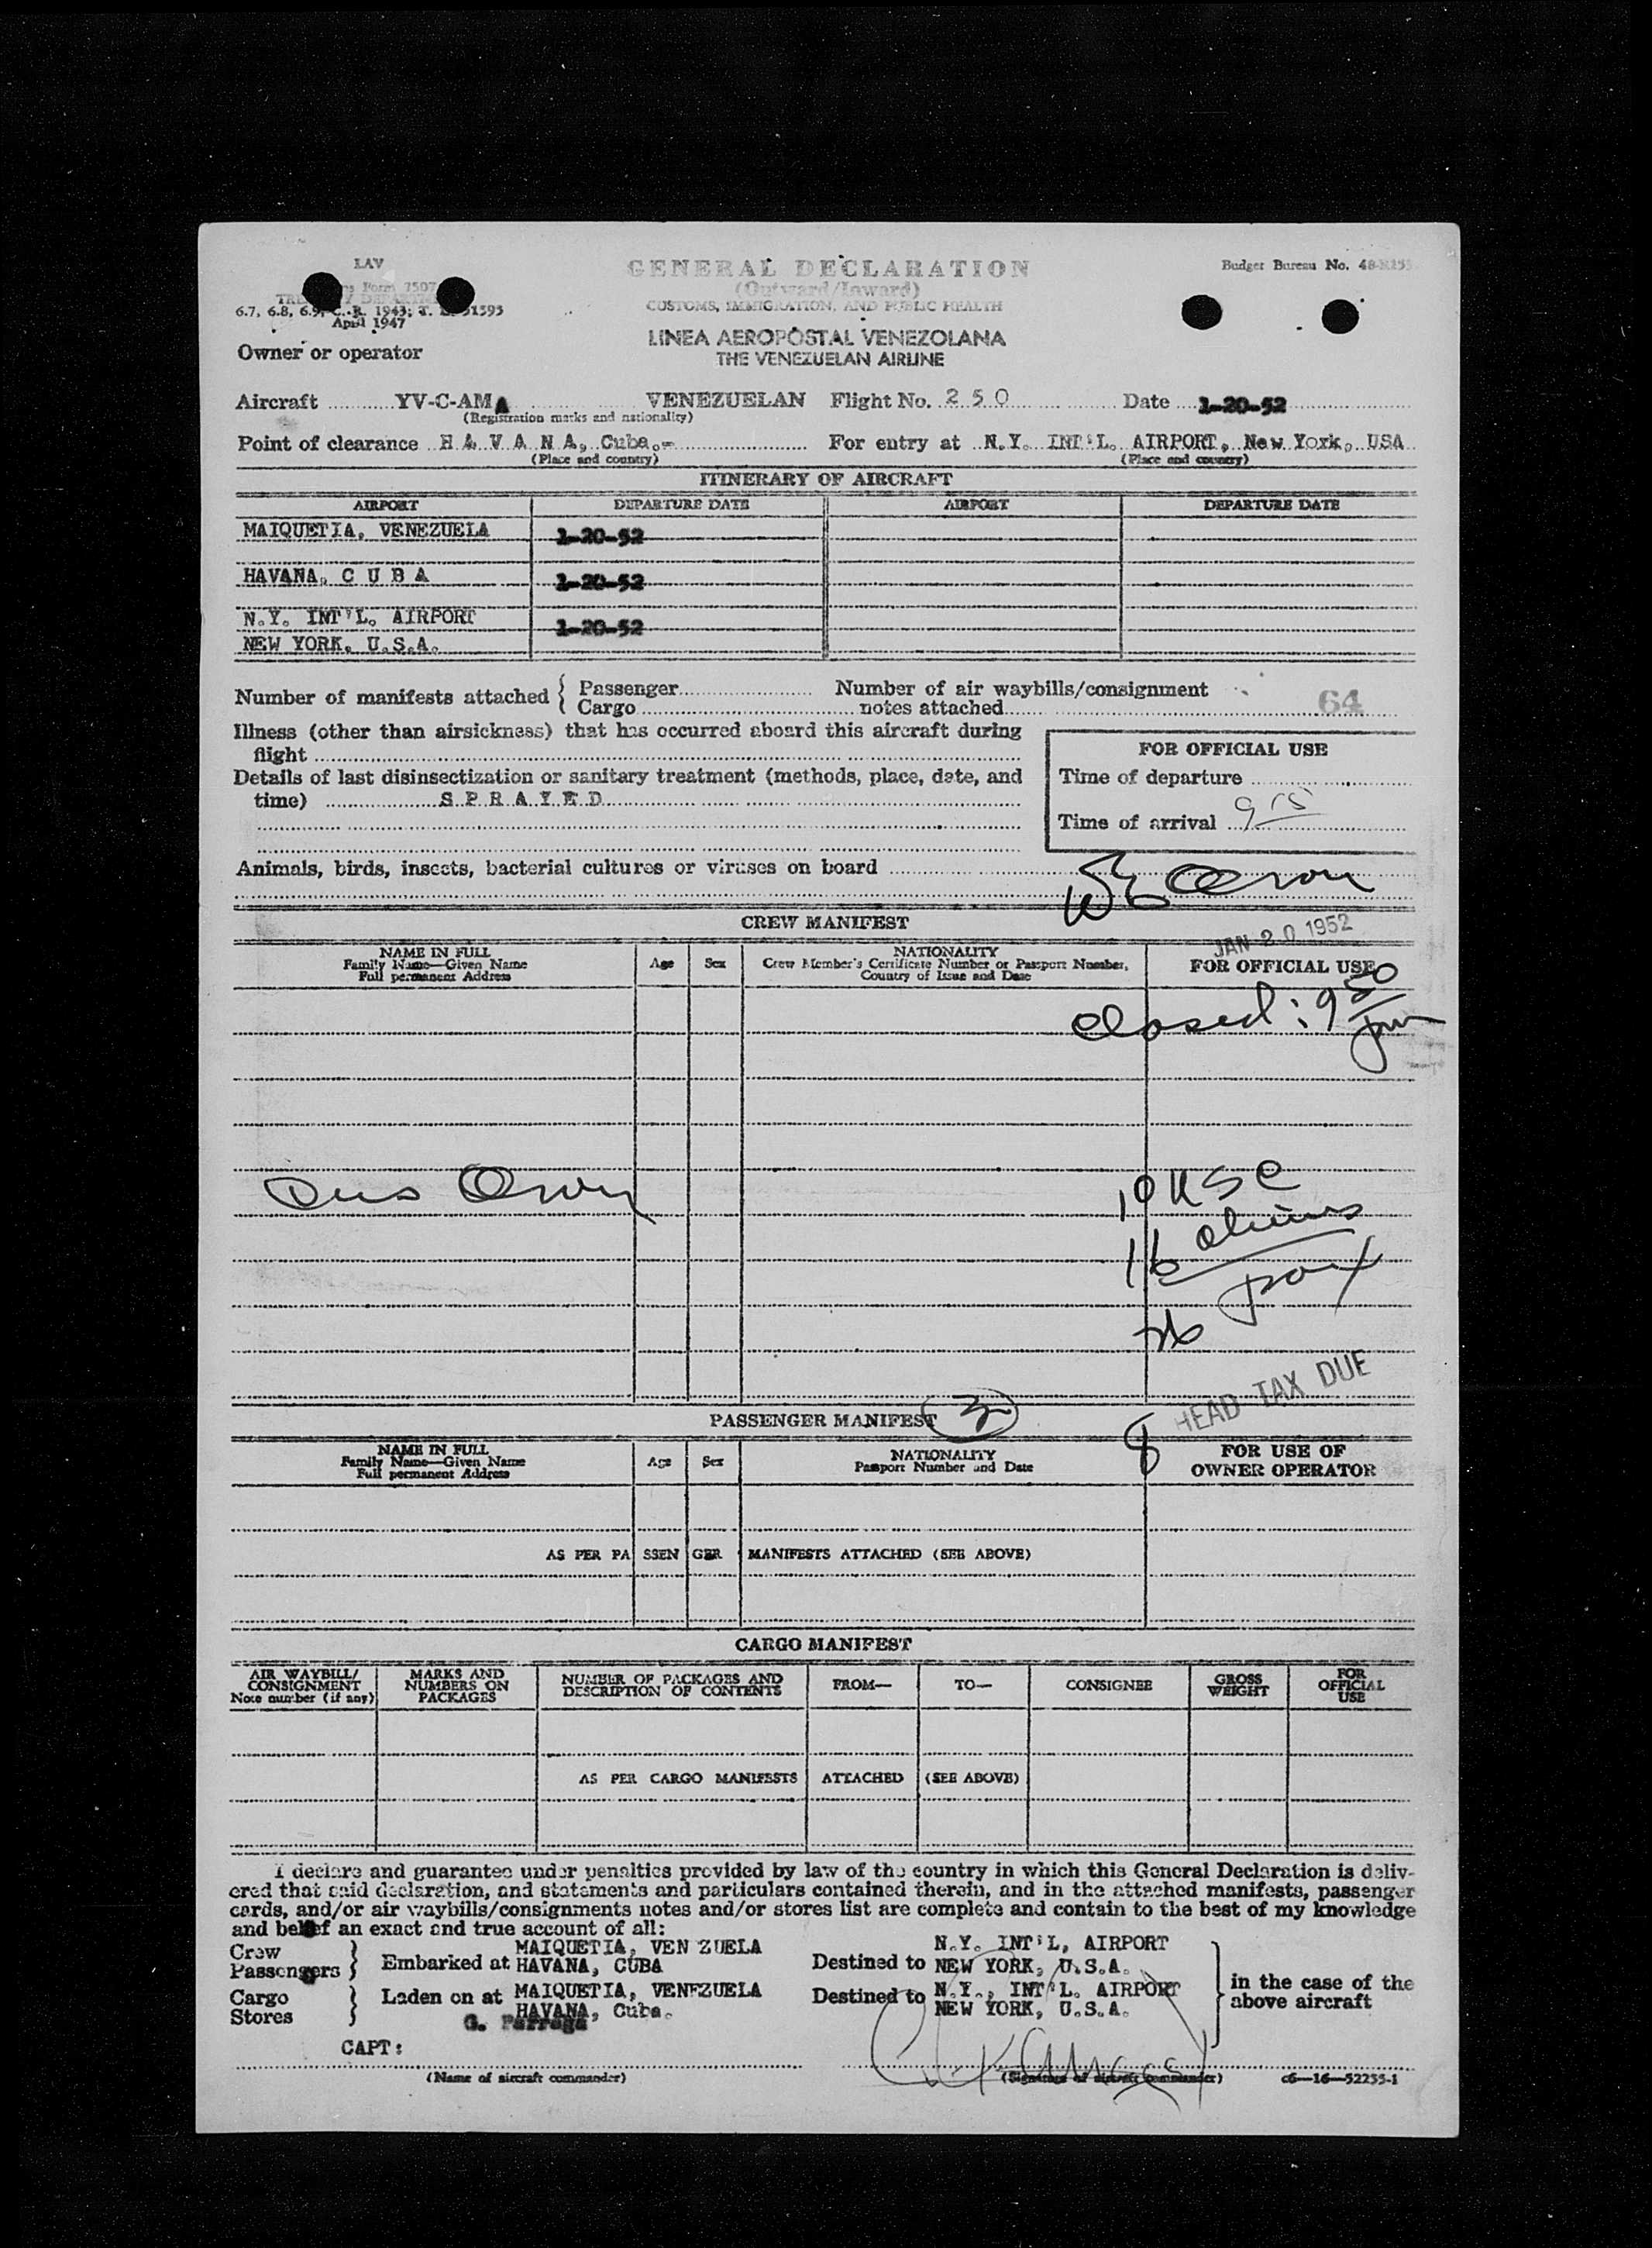 LAV
GENERAL DECLARATION
Budget Bureau No. 48-
(Outward/Inward)
Form 7507
CUSTOMS, IMMIGRATION, AND PUBLIC HEALTH
6.7, 6.8, 6.9, C. R. 1943; T. 51595
April 1947
LINEA AEROPOSTAL VENEZOLANA
THE VENEZUELAN AIRLINE
Owner or operator
Aircraft YV-C-AMA VENEZUELAN Flight No. 250 Date 1-20-52
(Registration marks and nationality)
Point of clearance H A V A N A, Cuba.- For entry at N.Y. INT'L. AIRPORT, New York, USA
(Place and country) (Place and country)
ITINERARY OF AIRCRAFT
AIRPORT DEPARTURE DATE AIRPORT DEPARTURE DATE
MAIQUETIA, VENEZUELA 1-20-52
HAVANA, C U B A 1-20-52
N.Y. INT'L. AIRPORT 1-20-52
NEW YORK, U.S.A.
Number of manifests attached { Passenger Number of air waybills/consignment
Cargo notes attached 64
Illness (other than airsickness) that has occurred aboard this aircraft during
flight
FOR OFFICIAL USE
Details of last disinsectization or sanitary treatment (methods, place, date, and
time) S P R A Y E D
Time of departure
Time of arrival 9 15
Animals, birds, insects, bacterial cultures or viruses on board
CREW MANIFEST
JAN 20 1952
NAME IN FULL
Family Name—Given Name
Full permanent Address
Age Sex
NATIONALITY
Crew Member's Certificate Number or Passport Number,
Country of Issue and Date
FOR OFFICIAL USE
closed: 9 50
pm
10 USC
16 aliens
26
HEAD TAX DUE
8
PASSENGER MANIFEST
NAME IN FULL
Family Name—Given Name
Full permanent Address
Age Sex
NATIONALITY
Passport Number and Date
FOR USE OF
OWNER OPERATOR
AS PER PASSENGER MANIFESTS ATTACHED (SEE ABOVE)
CARGO MANIFEST
AIR WAYBILL/
CONSIGNMENT
Note number (if any)
MARKS AND
NUMBERS ON
PACKAGES
NUMBER OF PACKAGES AND
DESCRIPTION OF CONTENTS
FROM— TO— CONSIGNEE
GROSS
WEIGHT
FOR
OFFICIAL
USE
AS PER CARGO MANIFESTS ATTACHED (SEE ABOVE)
I declare and guarantee under penalties provided by law of the country in which this General Declaration is deliv-
ered that said declaration, and statements and particulars contained therein, and in the attached manifests, passenger
cards, and/or air waybills/consignments notes and/or stores list are complete and contain to the best of my knowledge
and belief an exact and true account of all:
Crew
Passengers } Embarked at MAIQUETIA, VEN ZUELA
HAVANA, CUBA
Destined to N.Y. INT'L, AIRPORT
NEW YORK, U.S.A.
Cargo
Stores } Laden on at MAIQUETIA, VENEZUELA
HAVANA, Cuba.
Destined to N.Y., INT'L. AIRPORT
NEW YORK, U.S.A.
} in the case of the
above aircraft
G. Parraga
CAPT:
(Name of aircraft commander) (Signature of aircraft commander) c6—16—52255-1